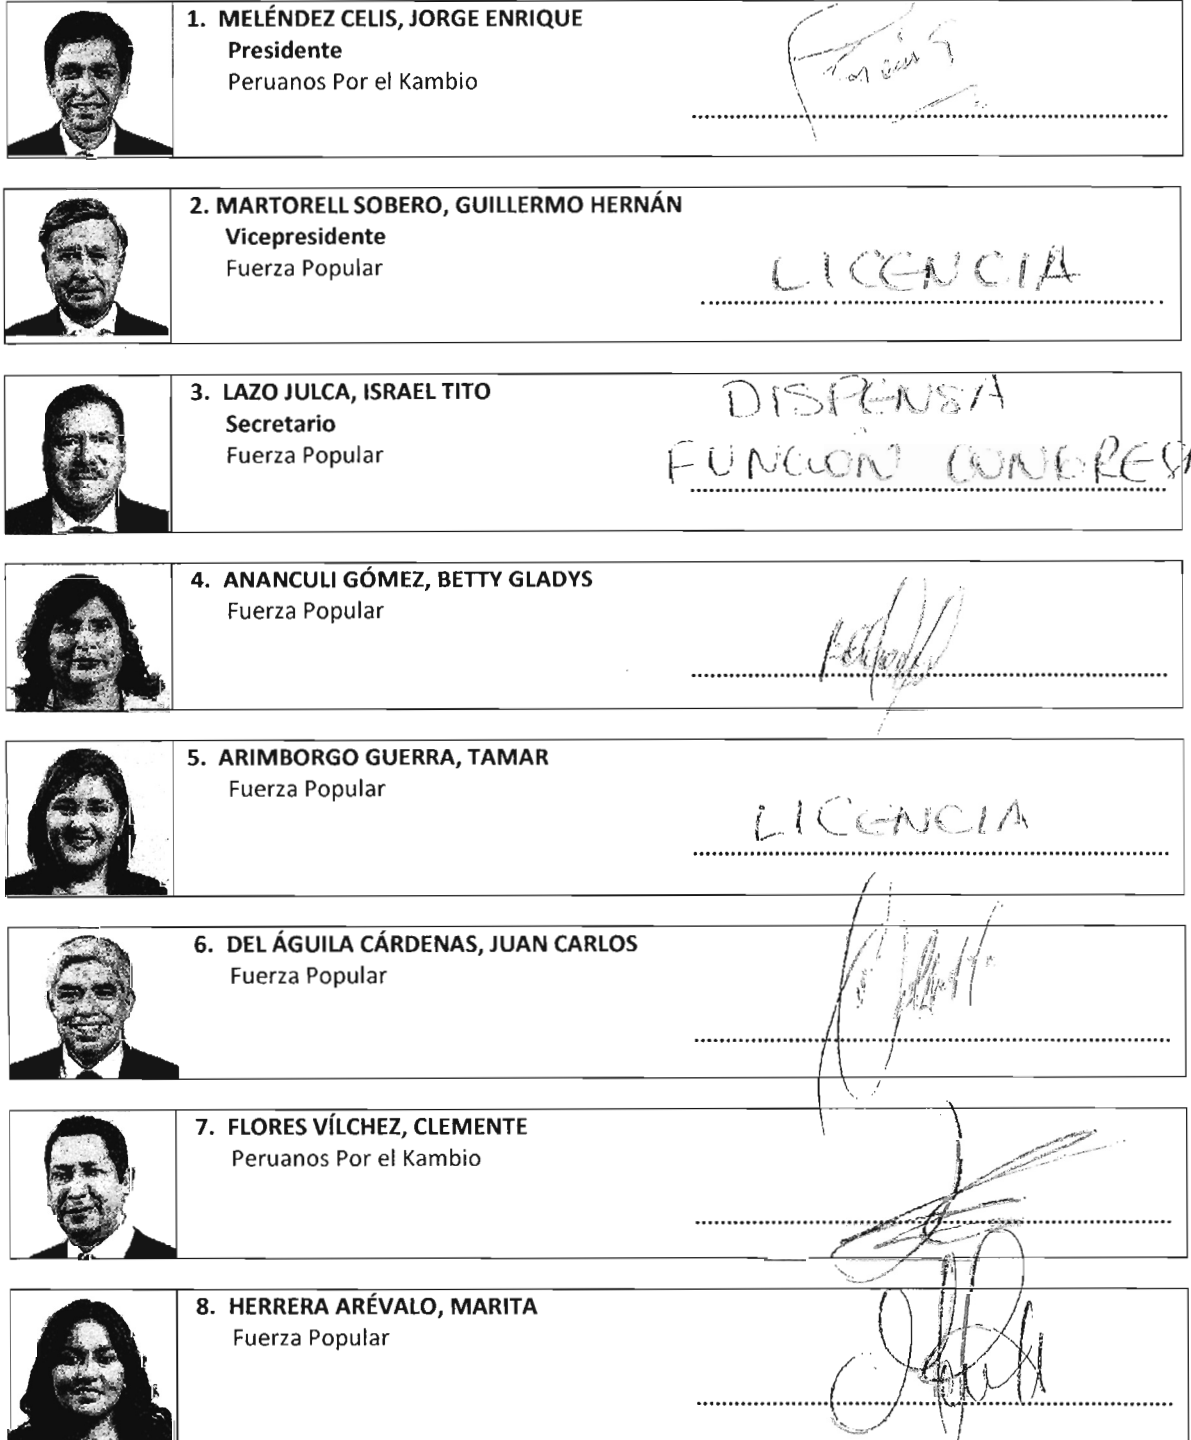 1. MELÉNDEZ CELIS, JORGE ENRIQUE
Presidente
Peruanos Por el Kambio
2. MARTORELL SOBERO, GUILLERMO HERNÁN
Vicepresidente
Fuerza Popular
LICENCIA
3. LAZO JULCA, ISRAEL TITO
Secretario
Fuerza Popular
DISPENSA
FUNCION CONGRESA
4. ANANCULI GÓMEZ, BETTY GLADYS
Fuerza Popular
5. ARIMBORGO GUERRA, TAMAR
Fuerza Popular
LICENCIA
6. DEL ÁGUILA CÁRDENAS, JUAN CARLOS
Fuerza Popular
7. FLORES VÍLCHEZ, CLEMENTE
Peruanos Por el Kambio
8. HERRERA ARÉVALO, MARITA
Fuerza Popular